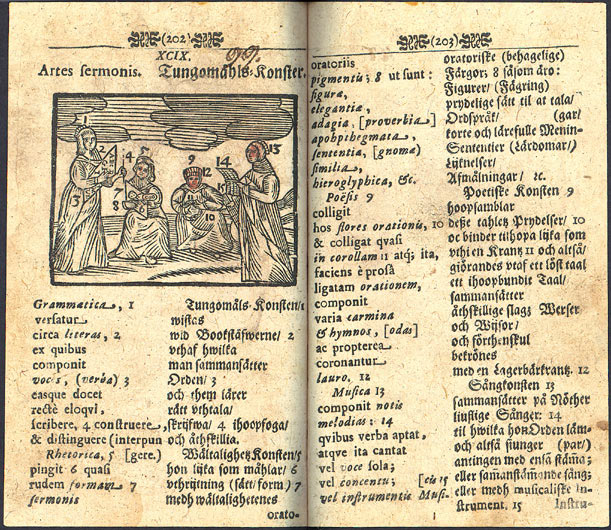 (202)
XCIX. 99.
Artes sermonis. Tungomåhls-Konster.
1
2
3
4
5
6
7
8
9
10
11
12
13
14
15
Grammatica, 1 Tungomåls-Konsten/1
versatur wistas
circa literas, 2 wid Bookstäfwerne/ 2
ex quibus vthaf hwilka
componit man sammansätter
voces, (verba) 3 Orden/ 3
easque docet och them lärer
rectè eloqui, rätt vthtala/
scribere, 4 construere, skrijfwa/ 4 ihoopfoga/
& distinguere (interpun och åthskillia.
Rhetorica, 5 [gere.) Wältalighetz Konsten/5
pingit 6 quasi hon lijka som måhlar/ 6
rudem formam 7 vthrijtning (sätt/form) 7
sermonis medh wältalighetenes
orato-
(203)
oratoriis oratoriske (behagelige)
pigmentis; 8 ut sunt: Färgor; 8 såsom äro:
figuræ, Figurer/ (Fägring)
elegantiæ, prydelige sätt til at tala/
adagia, [proverbia] Ordspråk/ (gar/
apophthegmata, korte och lärefulle Menin-
sententiæ, [gnomæ) Sententier (Lärdomar/)
similia, Lijknelser/
hieroglyphica, &c. Afmålningar/ ꝛc.
Poësis 9 Poetiske Konsten 9
colligit hoopsamblar
hos flores orationis, 10 desse tahletz Prydelser/ 10
& colligat qvasi oc binder tilhopa lijka som
in corollam 11 atq; ita, vthi en Krantz 11 och altså/
faciens è prosâ giörandes vtaf ett löst taal
ligatam orationem, ett ihoopbundit Taal/
componit sammansätter
varia carmina åthskillige slags Werser
& hymnos, [odas] och Wijsor/
ac propterea och förthenskul
coronantur bekrönes
lauro. 12 med en Lagerbärkrantz. 12
Musica 13 Sångkonsten 13
componit notis sammansätter på Nöther
melodias 14 liuflige Sånger: 14
qvibus verba aptat, til hwilka hon Orden läm-
atqve ita cantat och altså siunger (par/)
vel voce sola; antingen med ensa stämma;
vel concentu; [cis 15 eller samanstämande sång;
vel instrumentis Musi- eller medh musicaliske In-
strument. 15 Instru-